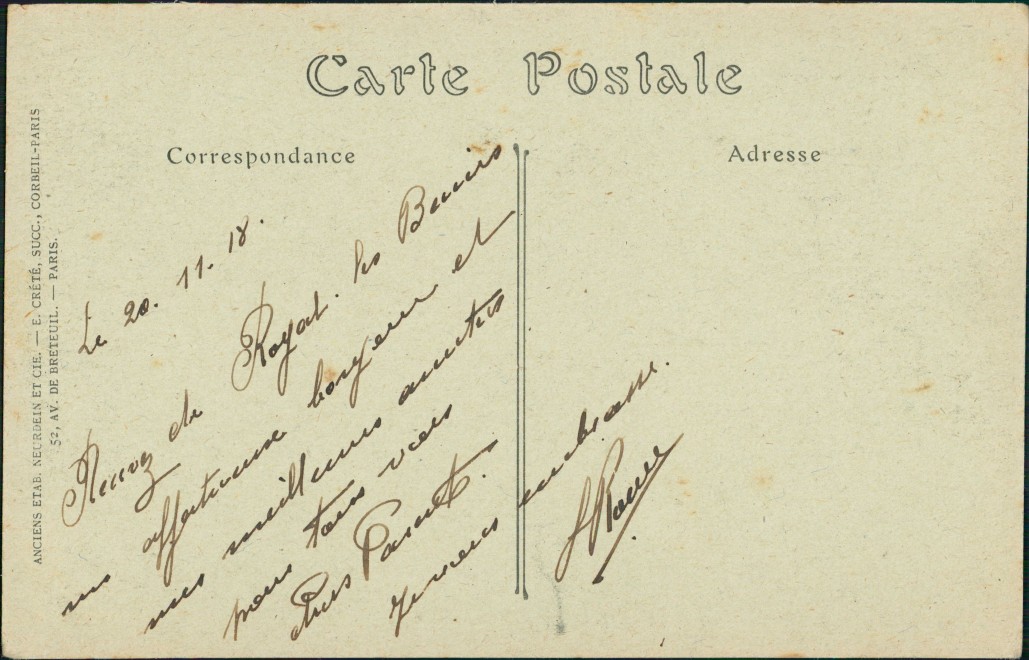 Carte Postale
Correspondance
Adresse
ANCIENS ETAB. NEURDEIN ET CIE. — E. CRÉTÉ, SUCC., CORBEIL-PARIS
52, AV. DE BRETEUIL. — PARIS.
Le 20. 11. 18.
Recevez de Royat. les Bains
un affectueux bonjour et
mes meilleures amitiés
pour tous vous
Chers Parents.
Je vous embrasse.